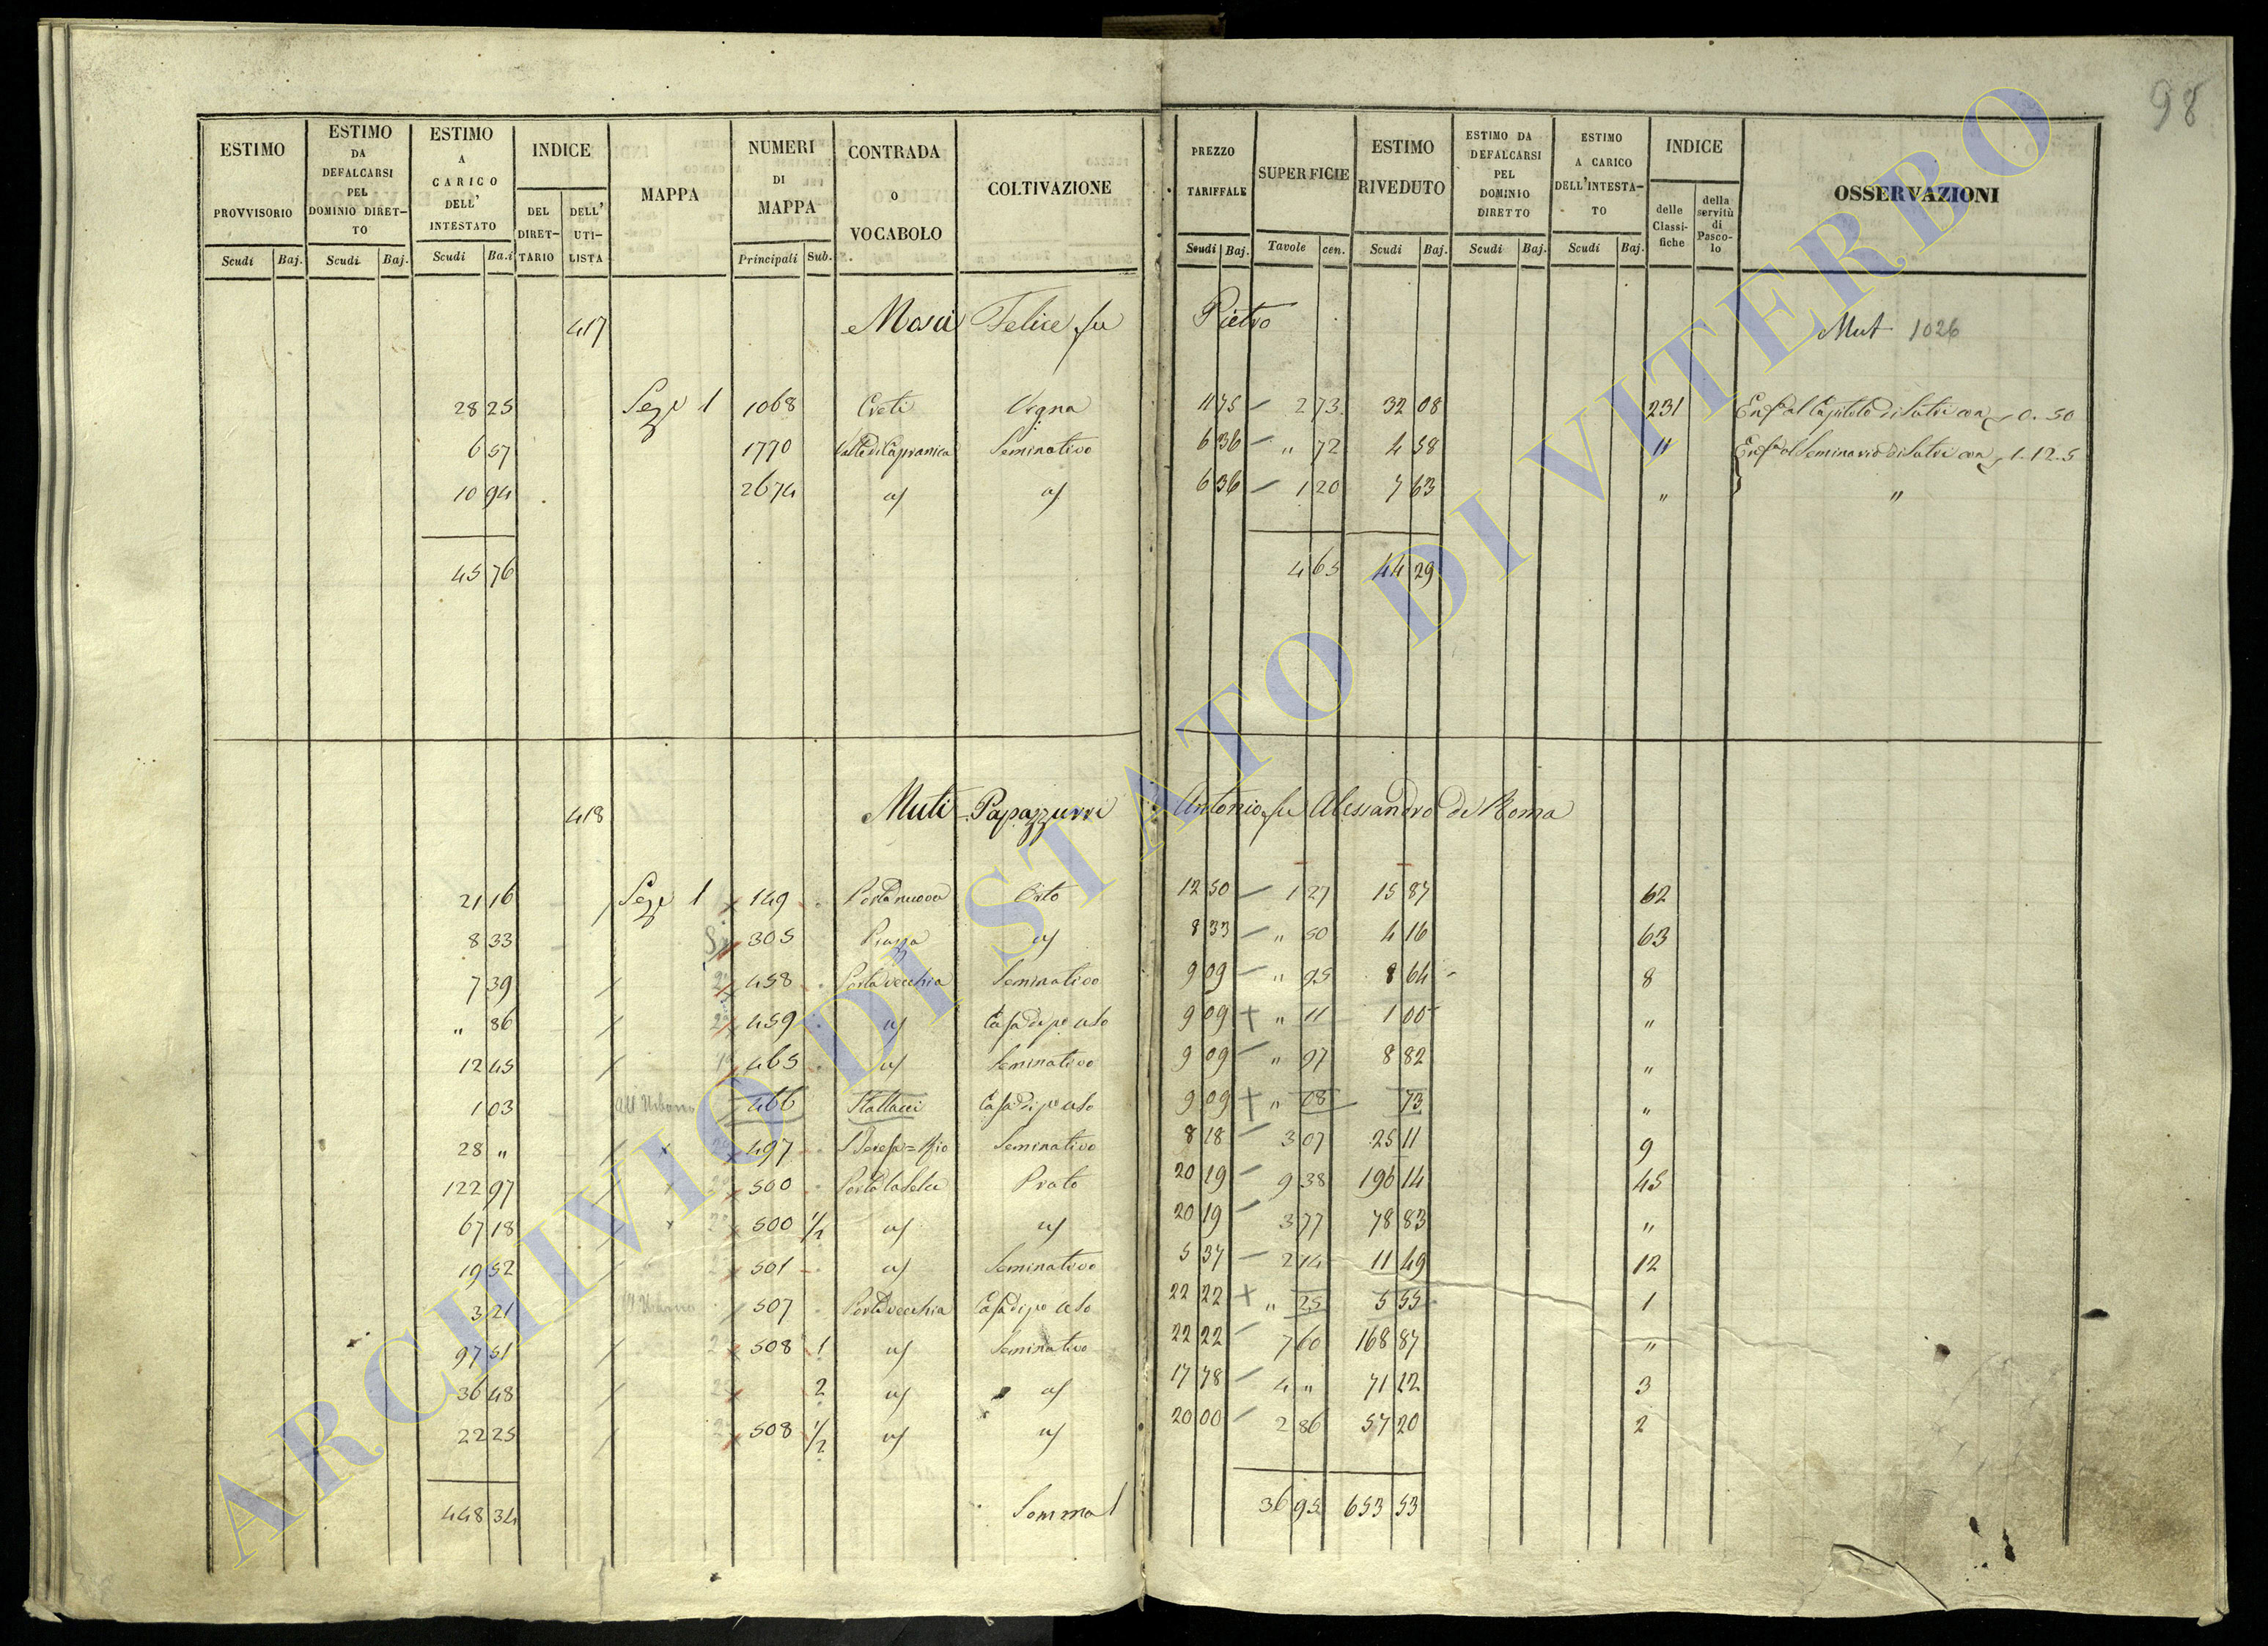 98
ESTIMO PROVVISORIO Scudi Baj.
ESTIMO DA DEFALCARSI PEL DOMINIO DIRET-TO Scudi Baj.
ESTIMO A CARICO DELL' INTESTATO Scudi Ba.i
INDICE DEL DIRET-TARIO DELL' UTI-LISTA
MAPPA
NUMERI DI MAPPA Principali Sub.
CONTRADA o VOCABOLO
COLTIVAZIONE
PREZZO TARIFFALE Scudi Baj.
SUPERFICIE Tavole cen.
ESTIMO RIVEDUTO Scudi Baj.
ESTIMO DA DEFALCARSI PEL DOMINIO DIRETTO Scudi Baj.
ESTIMO A CARICO DELL'INTESTA-TO Scudi Baj.
INDICE delle Classi-fiche della servitù di Pasco-lo
OSSERVAZIONI
417 Mosci Felice fu Pietro Mut 1026
28 25 Seze 1 1068 Creti Vigna 11 75 — 2 73 32 08 231 al Capitolo di Sutri 0.50
6 57 1770 Valle di Capranica Seminativo 6 36 — " 72 4 58 " al Seminario di Sutri 1.12.5
10 94 2674 6 36 — 1 20 7 63 " "
45 76 4 65 44 29
418 Muti Papazzurri Antonio fu Alessandro di Roma
21 16 Seze 1 149 Porta nuova Orto 12 50 — 1 27 15 87 62
8 33 305 Piazza 8 33 — " 50 4 16 63
7 39 458 Porta vecchia Seminativo 9 09 — " 95 8 64 8
" 86 459 Casa di po uso 9 09 + " 11 1 00 "
12 45 465 Seminativo 9 09 — " 97 8 82 "
1 03 All Urbano 466 Stallacci Casa di po uso 9 09 + " 08 73 "
28 " 497 Seminativo 8 18 — 3 07 25 11 9
122 97 500 Prato 20 19 — 9 38 196 14 45
67 18 500 1/2 20 19 3 77 78 83 "
19 52 501 Seminativo 5 37 — 2 14 11 49 12
3 21 Urbano 507 Porta vecchia Casa di po uso 22 22 + " 25 5 55 1
97 51 508 1 Seminativo 22 22 — 7 60 168 87 "
36 48 2 17 78 — 4 " 71 12 3
22 25 508 1/2 20 00 — 2 86 57 20 2
448 34 Somma 36 95 653 53
ARCHIVIO DI STATO DI VITERBO